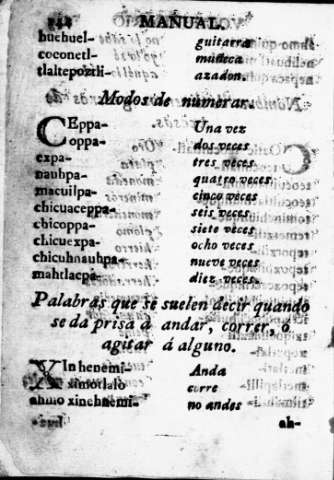 MANUAL.
huehuel- guitarra
coconetl- muñeca
tlaltepoztli- azadon.
Modos de numerar.
CEppa- Una vez
oppa- dos veces
expa- tres veces
nauhpa- quatro veces
macuilpa- cinco veces
chicuaceppa- seis veces
chicoppa- siete veces
chicuexpa- ocho veces
chicuhnauhpa- nueve veces
mahtlacpa- diez veces
Palabras que se suelen decir quando
se da prisa a andar, correr, o
agitar á alguno.
XIn henemi- Anda
ximotlalo corre
ahmo xinehnemi- no andes
ah-